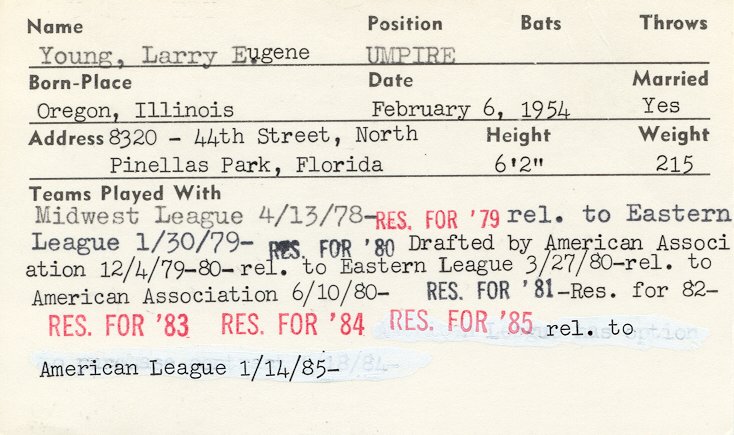 Name Position Bats Throws
Young, Larry Eugene UMPIRE
Born-Place Date Married
Oregon, Illinois February 6, 1954 Yes
Address 8320 - 44th Street, North Height Weight
Pinellas Park, Florida 6'2" 215
Teams Played With
Midwest League 4/13/78-RES. FOR '79 rel. to Eastern
League 1/30/79- RES. FOR '80 Drafted by American Associ
ation 12/4/79-80-rel. to Eastern League 3/27/80-rel. to
American Association 6/10/80- RES. FOR '81-Res. for 82-
RES. FOR '83 RES. FOR '84 RES. FOR '85 rel. to
American League 1/14/85-